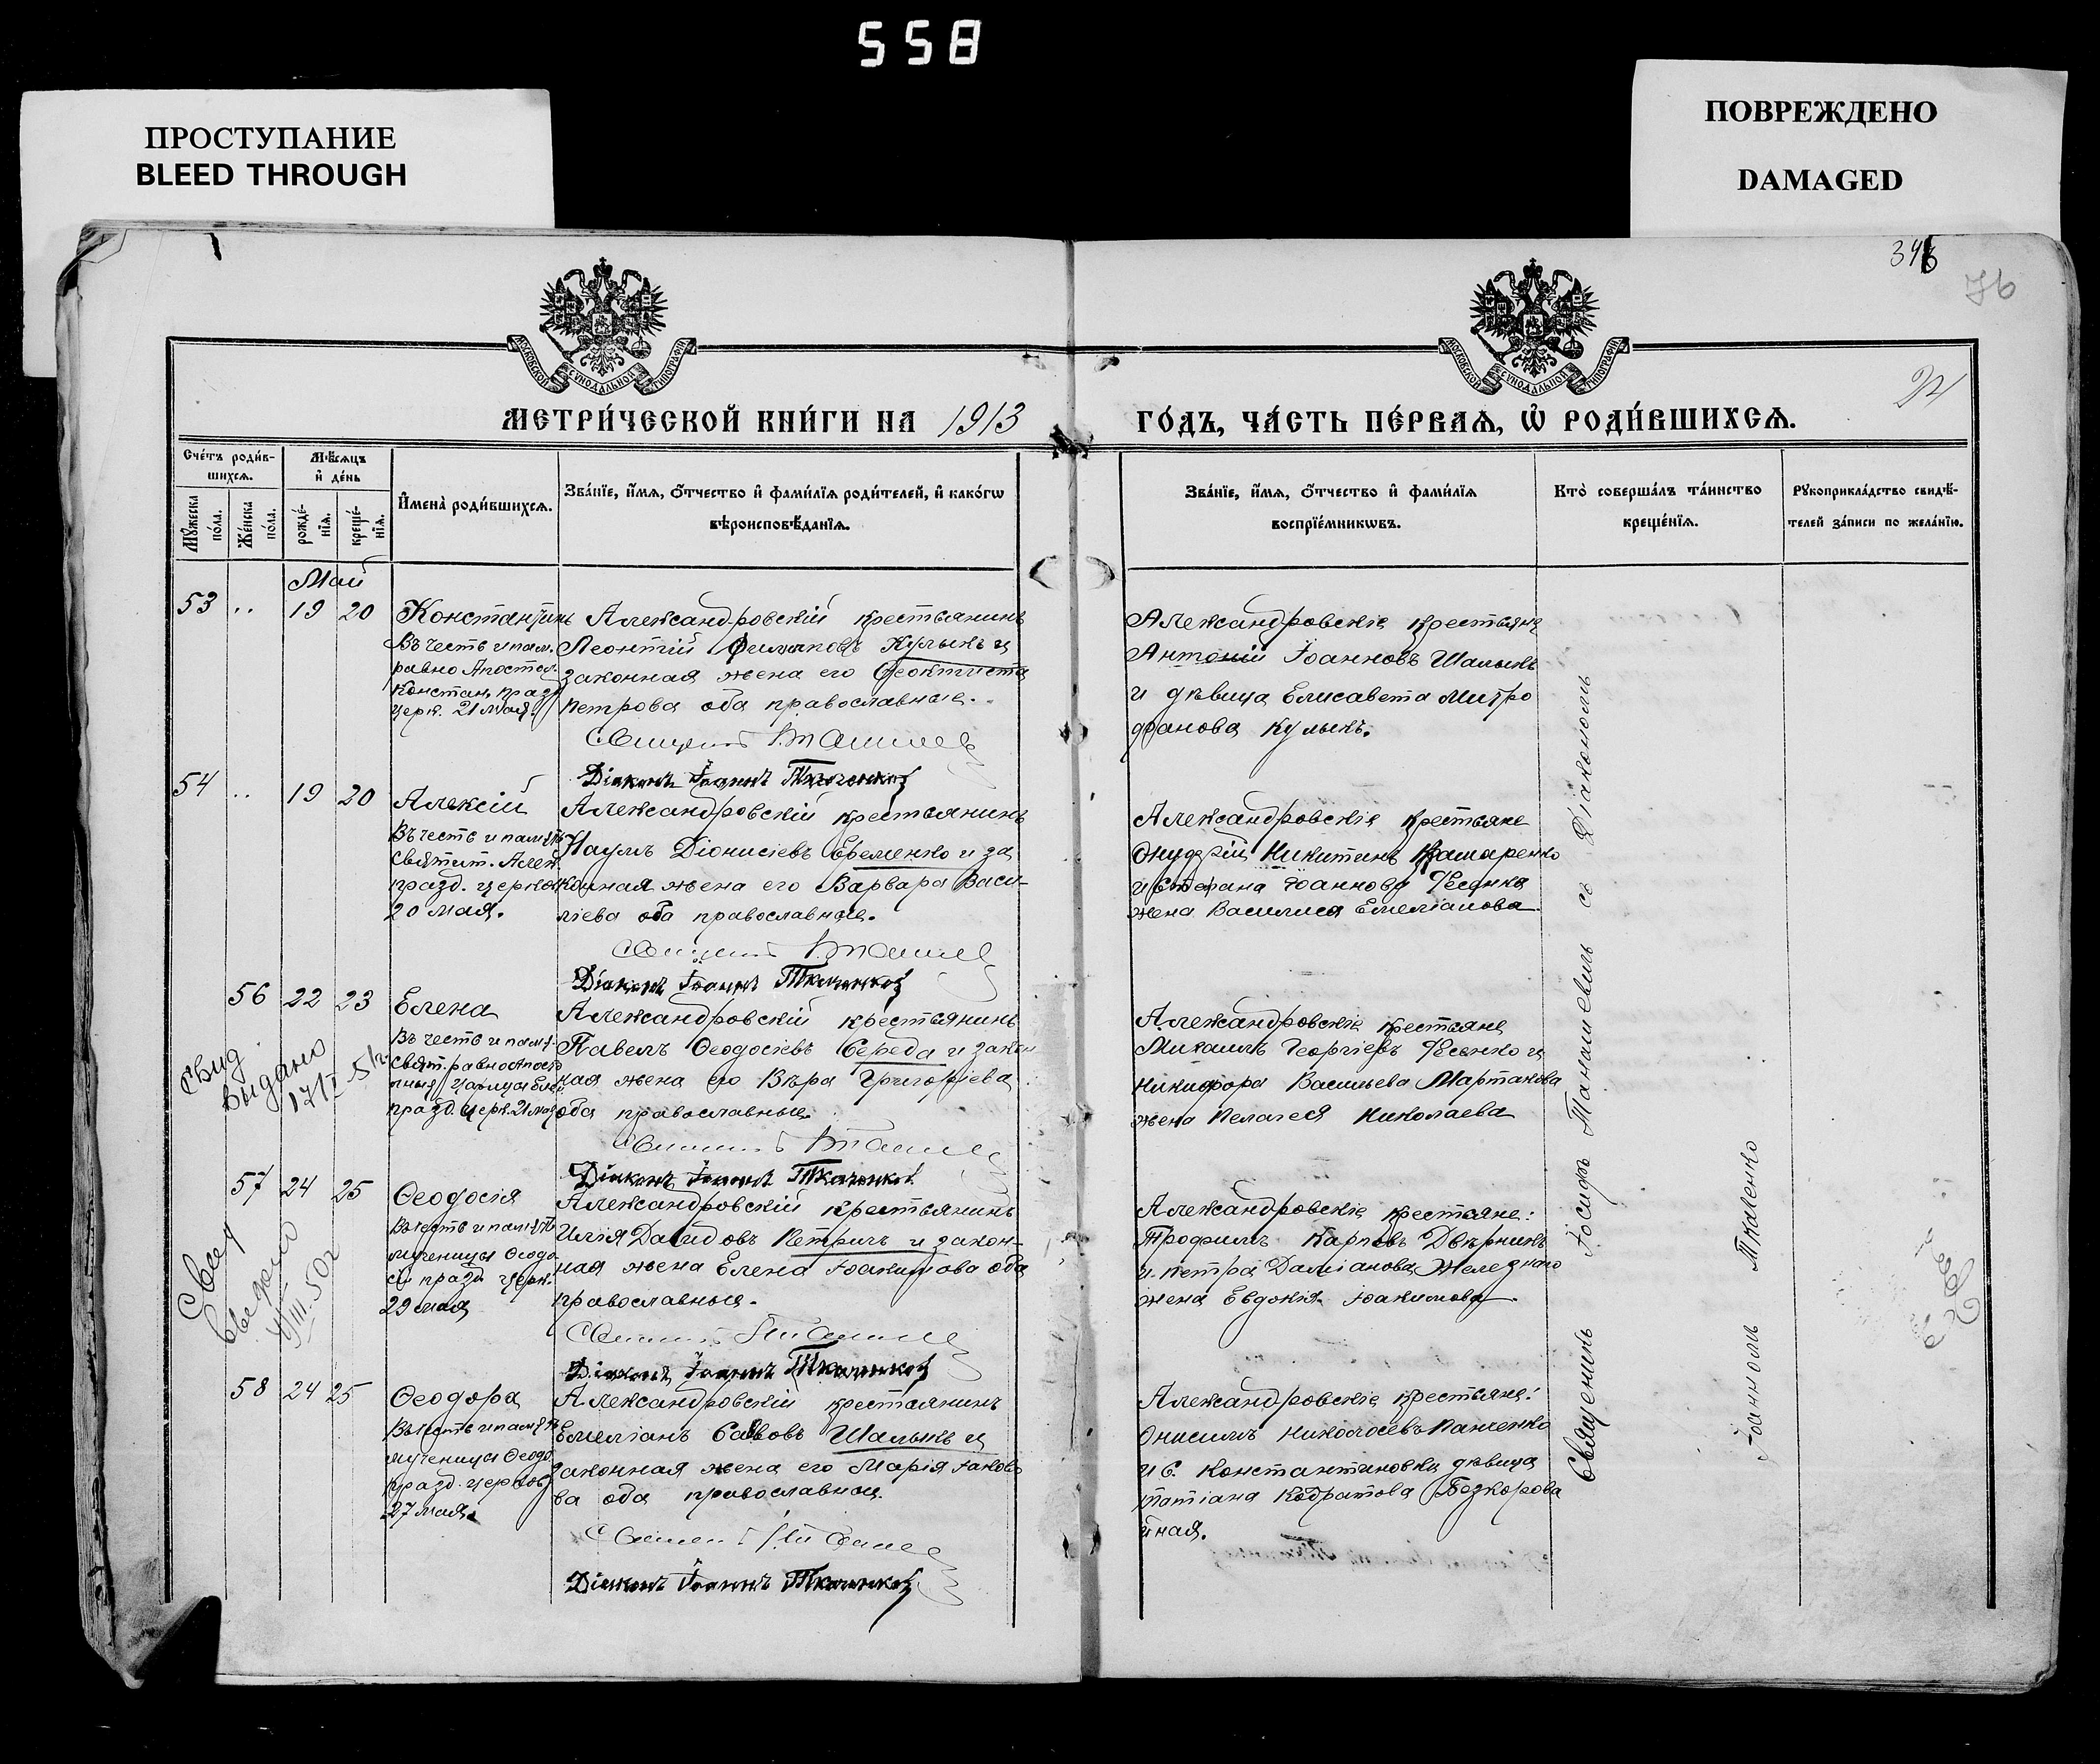 558
ПРОСТУПАНИЕ
BLEED THROUGH
ПОВРЕЖДЕНО
DAMAGED
346
76
МОСКОВСКОЙ СѴНОДАЛЬНОЙ ТИПОГРАФІИ
МОСКОВСКОЙ СѴНОДАЛЬНОЙ ТИПОГРАФІИ
МЕТРИ́ЧЕСКОЙ КНИ́ГИ НА 1913
ГО́ДЪ, ЧА́СТЬ ПЕ́РВАѦ, Ѡ҆ РОДИ́ВШИХСѦ.
Сче́тъ роди́в-
шихсѧ.
Мѣ́сѧцъ
и҆ де́нь
Мꙋ́жеска
по́ла.
Же́нска
по́ла.
рожде́-
нїѧ.
креще́-
нїѧ.
И҆мена̀ роди́вшихсѧ.
Зва́нїе, и҆́мѧ, ѻ҆́тчество и҆ фами́лїѧ роди́телей, и҆ како́гѡ
вѣроисповѣ́данїѧ.
Зва́нїе, и҆́мѧ, ѻ҆́тчество и҆ фами́лїѧ
воспрїе́мникѡвъ.
Кто̀ соверша́лъ та́инство
креще́нїѧ.
Рꙋкоприкла́дство свидѣ́-
телей за́писи по жела́нїю.
Май
53 .. 19 20
Константинъ
Въ честь и пам.
равно Апостол.
Констан. празд
церк. 21 мая.
Александровскій крестьянинъ
Леонтій Филиповъ Кулыкъ и
законная жена его Феоктиста
Петрова оба православные.
Діаконъ Іоаннъ Ткаченко
Александровскіе крестьяне
Антоній Іоанновъ Шалыкъ
и дѣвица Елисавета Митро
фанова Кулыкъ.
54 .. 19 20
Алексій
Въ честь и память
Святит. Алек.
празд. церков
20 мая.
Александровскій крестьянинъ
Наумъ Діонисіевъ Еременко и за
конная жена его Варвара Васи-
ліева оба православные.
Діаконъ Іоаннъ Ткаченко
Александровскіе крестьяне
Онуфрій Никитинъ Камаренко
и Стефана Іоаннова
жена Василиса Емеліанова
56 22 23
Елена
Въ честь и памят.
Свят. равноАпост
празд. церк. 21 мая
Александровскій крестьянинъ
Павелъ Феодосіевъ Середа и закон
ная жена его Вѣра Григоріева
оба православные.
Діаконъ Іоаннъ Ткаченко
Александровскіе крестьяне
Михаилъ Георгіевъ
Никифора Васильева Мартанова
жена Пелагея Николаева
Свид.
выдано
57 24 25
Феодосія
Въ честь и память
мученицы Феодо
сіи празд церк.
29 мая
Александровскій крестьянинъ
Илія Давидовъ Петричъ и закон-
ная жена Елена Іоакимова оба
православные.
Діаконъ Іоаннъ Ткаченко
Александровскіе крестьяне:
Трофимъ Карповъ Двѣрникъ
и Петра Даміанова Железнаго
жена Евдокія Іоакимова.
58 24 25
Феодора
Въ честь и память
мученицы Феодо
празд. церков
27 мая.
Александровскій крестьянинъ
Емеліанъ Саввовъ Шалыкъ и
законная жена его Марія Іаковле
ва оба православные.
Діаконъ Іоаннъ Ткаченко
Александровскіе крестьяне:
Онисимъ Николаевъ Панченко
и с. Константиновки дѣвица
Татіана Кодратова Безкорова
йная.
Священикъ Іосифъ Танашевичъ съ Діакономъ
Іоанномъ Ткаченко